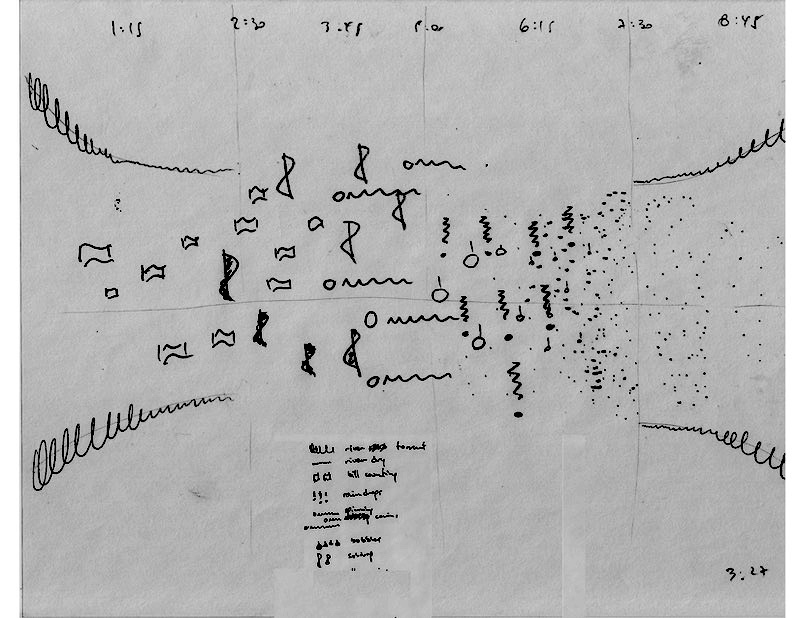 1:15 2:30 3:45 5:00 6:15 7:30 8:45
river torrent
river dry
bill counting
raindrops
spinning
coins
bubbles
3:27